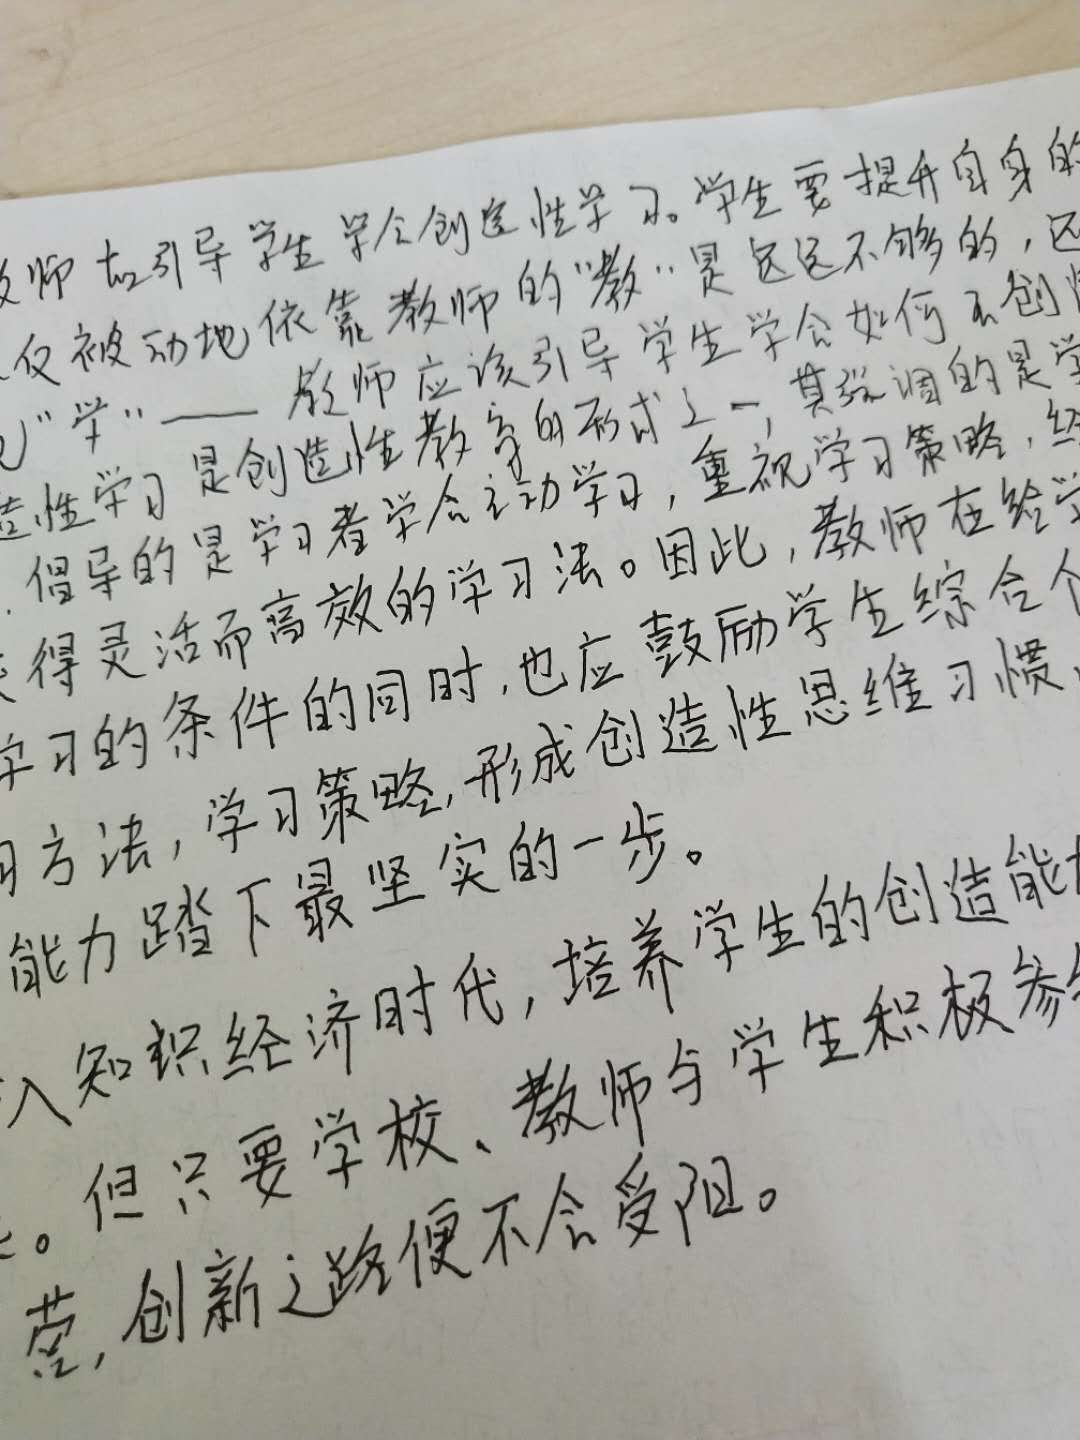 教师应引导学生学会创造性学习。学生要提升自身的
仅被动地依靠教师的“教”是远远不够的，还
“学”——教师应该引导学生学会如何去创
造性学习是创造性教育的形式之一，其强调的是学
倡导的是学习者学会主动学习，重视学习策略，经
得灵活而高效的学习法。因此，教师在给学
学习的条件的同时，也应鼓励学生综合个
用方法，学习策略，形成创造性思维习惯，
能力踏下最坚实的一步。
入知识经济时代，培养学生的创造能力
。但只要学校、教师与学生积极参与
营，创新之路便不会受阻。